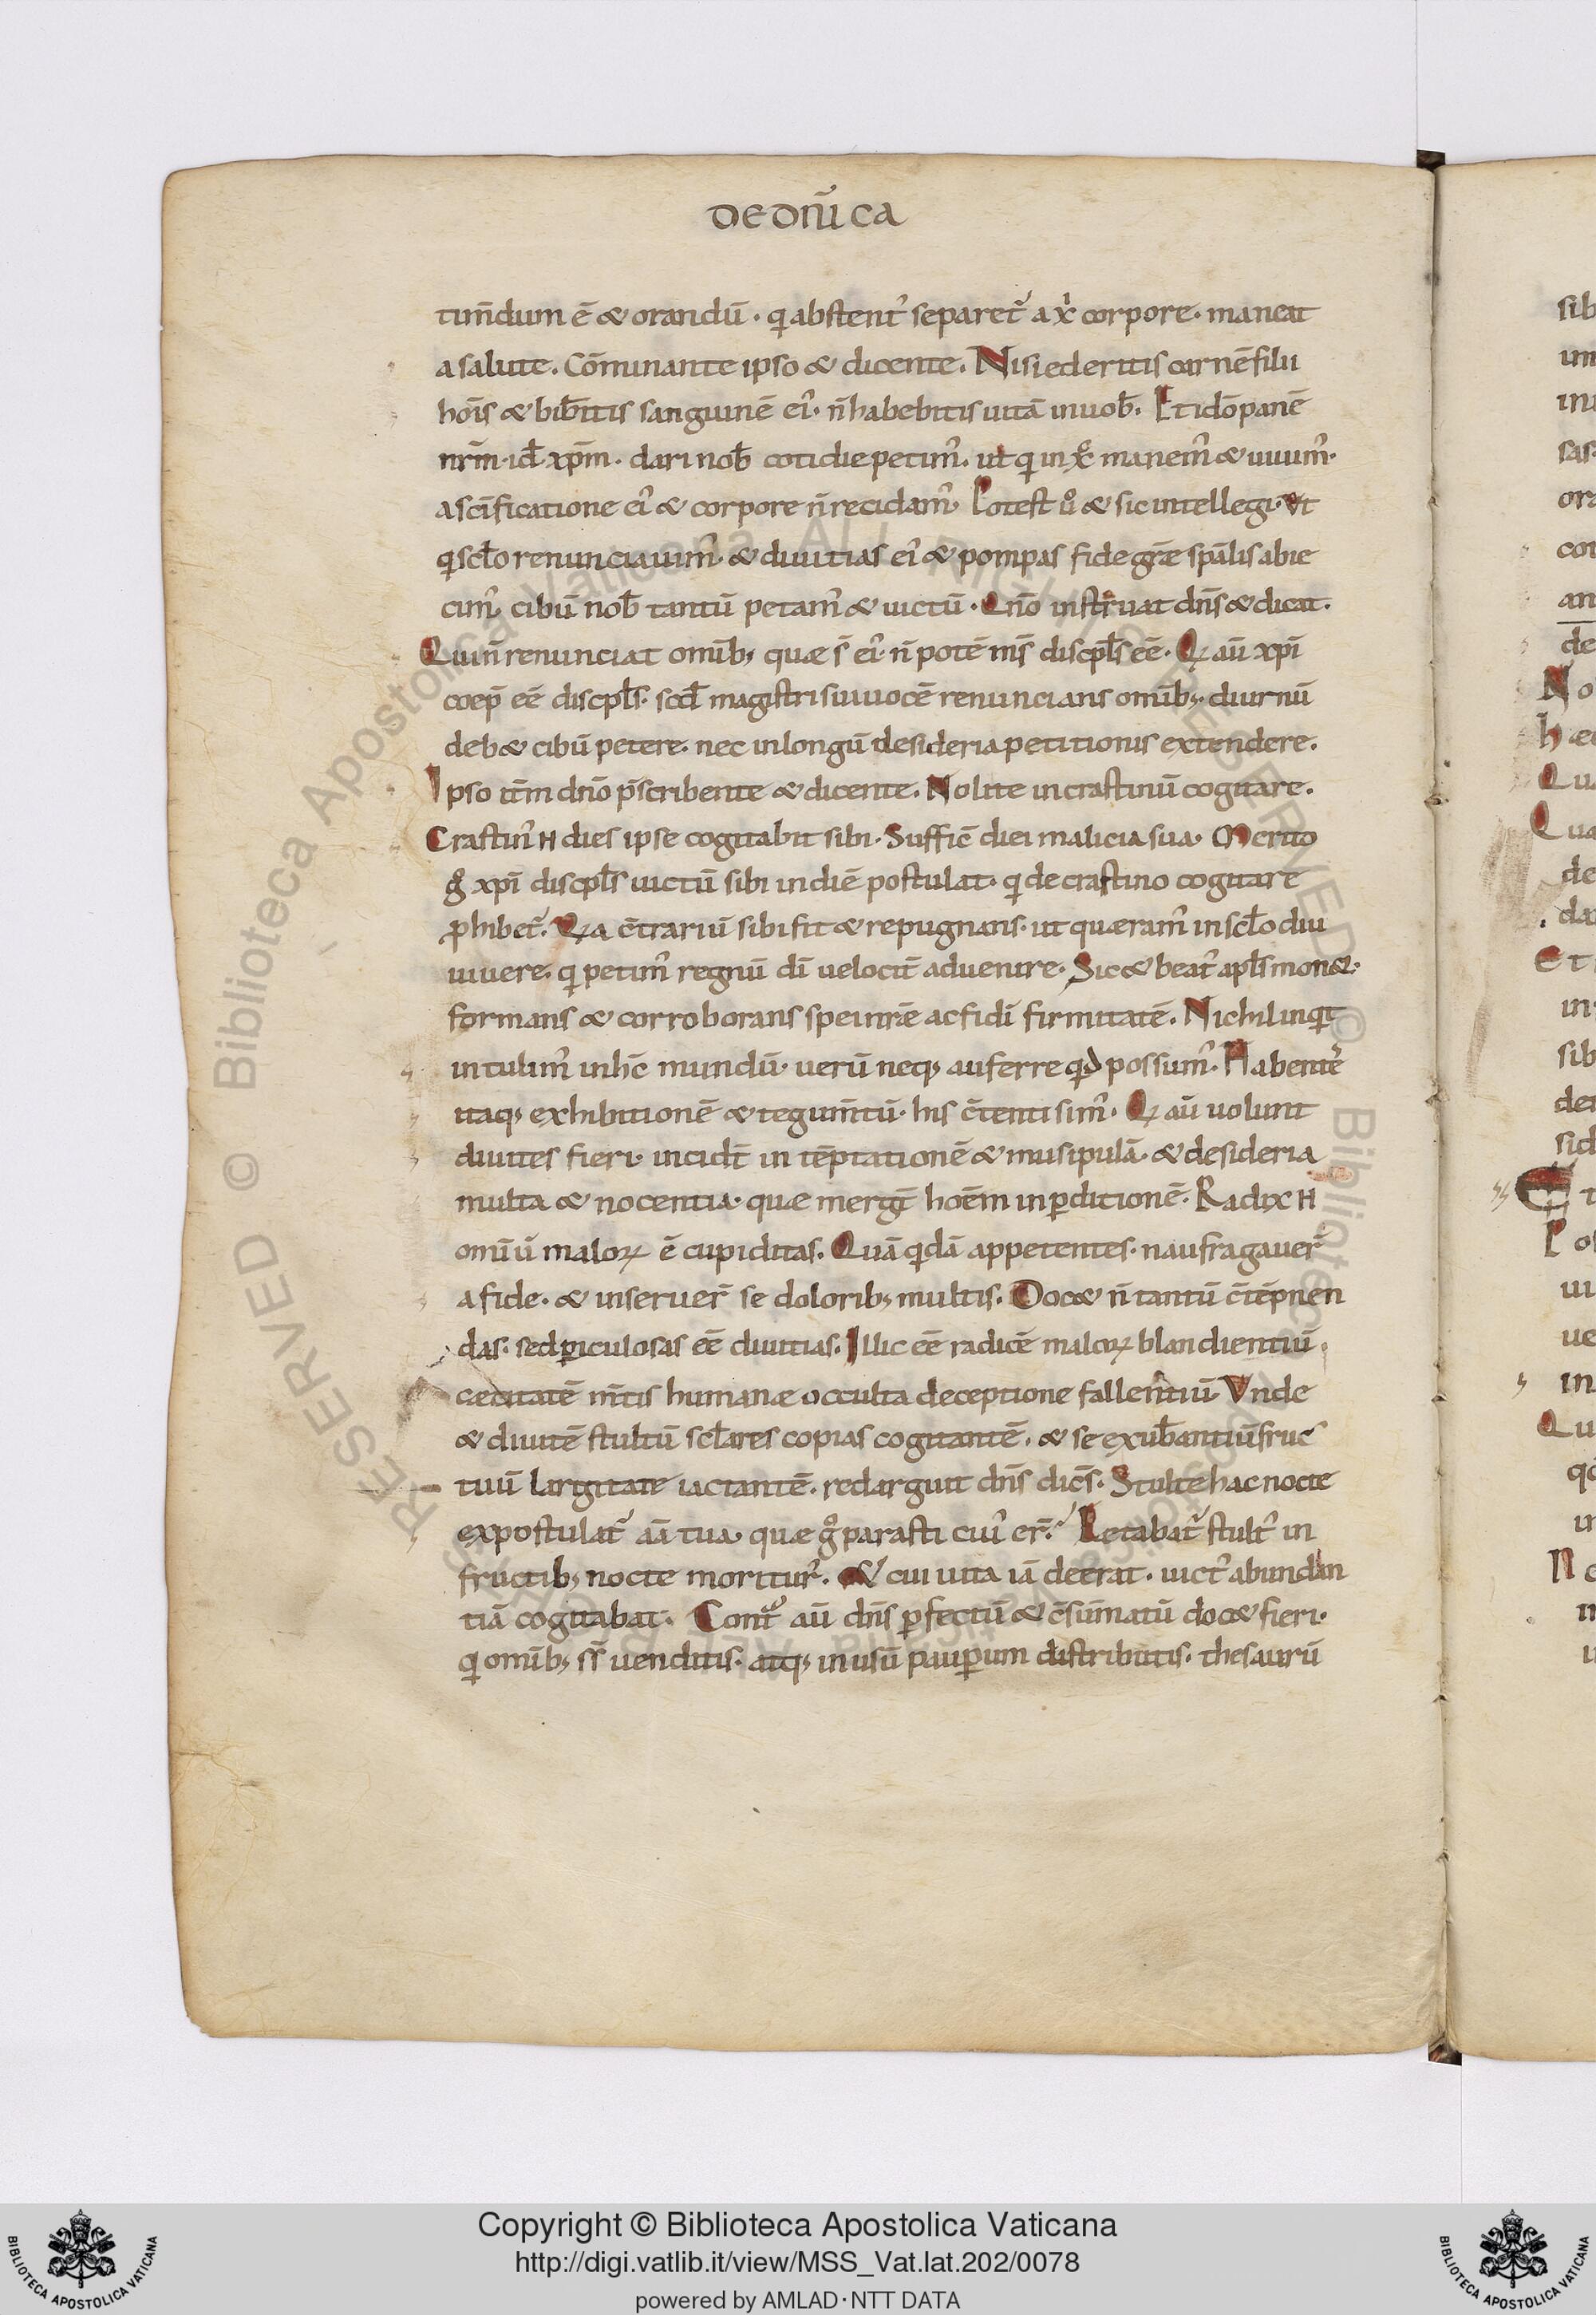 DE DN̄ICA
tim̄dum ē & orandū · q abstent᾽ separet᷑ a xi corpore · maneat
a salute . Cōminante ipso & dicente . Nisi ederitis carnē filii
hoīs & bib̄itis sanguinē ei᾽ · n̄ habebitis uitā in uob̄ . Et idō panē
nr̄m · id̄ xp̄m · dari nob̄ cotidie petim᾽ . ut q in xo manem᾽ & uiuim᾽ ·
a sc̄ificatione ei᾽ & corpore n̄ recidam᾽ · Potest uo & sic intellegi · Vt
q sc̄lo renunciauim᾽ · & diuitias ei᾽ & pompas fide grē sp̄alis abie
cim᾽ · cibū nob̄ tantū petam᾽ & uictū · Qn̄o instruat dn̄s & dicat .
Qui n̄ renunciat omīb; quæ s̄ ei᾽ · n̄ potē ms̄ discpl̄s eē · Q aū xp̄i
coep̄ eē discpl̄s · scd̄ magistri sui uocē renuncians omīb; · diurnū
deb& cibū petere · nec in longū desideria petitionis extendere .
Ipso itm̄ dn̄o p̄scribente & dicente . Nolite in crastinū cogitare .
Crastin᾽ H dies ipse cogitabit sibi · Suffic̄ diei malicia sua · Merito
go xp̄i discpl̄s uictū sibi in diē postulat · q de crastino cogitare
ꝓhibet᷑ . Qa c̄trariū sibi fit & repugnans · ut quæram᾽ in sc̄lo diu
uiuere · q petim᾽ regnū dī uelocit̄ aduenire · Sic & beat᾽ apl̄s mon& ·
formans & corroborans spei nr̄e ac fidī firmitatē . Nichil inqt
intulim᾽ in hc̄ mundū · uerū neq; auferre qd possum᾽ · Habentē
itaq; exhibitionē & tegum̄tū · his c̄tenti sim᾽ · Q aū uolunt
diuites fieri · incidt̄ in tēptationē & musipulā · & desideria
multa & nocentia · quæ mergt̄ hoēm in ꝑditionē · Radix H
omīū maloꝝ ē cupiditas . Quā qdā appetentes · naufragauer̄
a fide · & inseruer̄ se dolorib; multis . Doc& n̄ tantū c̄tēpnen
das · sed ꝑiculosas eē diuitias . Illic eē radicē maloꝝ blandientiū ·
cæcitatē m̄tis humanæ occulta deceptione fallentiū Vnde
& diuitē stultū sc̄lares copias cogitantē . & se exub̄antiū fruc
tuū largitate iactantē . redarguit dn̄s dicēs . Stulte hac nocte
expostulat᷑ aīa tua · quæ go parasti cui᾽ er̄ . Letabat᷑ stult᾽ in
fructib; nocte moritur᾽ . & cui uita iā deerat . uict᾽ abundan
tiā cogitabat . Cont᷑ aū dn̄s ꝑfectū & c̄sūmatū doc& fieri ·
q omīb; ss̄ uenditis · atq; in usū pauꝑum distributis · thesaurū
Copyright © Biblioteca Apostolica Vaticana
http://digi.vatlib.it/view/MSS_Vat.lat.202/0078
powered by AMLAD·NTT DATA